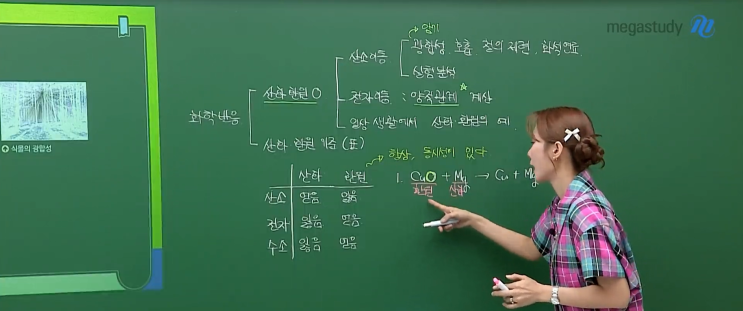 megastudy
암기
산소이동
광합성, 호흡, 철의 제련, 화석연료
실험분석
화학반응
산화 환원 O
전자이동 : 양적관계 계산
일상생활에서 산화 환원의 예
산화 환원 X (표)
항상, 동시성이 있다
산화 환원
산소 얻음 잃음
전자 잃음 얻음
수소 잃음 얻음
1. CuO + Mg → Cu + Mg
환원 산화
식물의 광합성